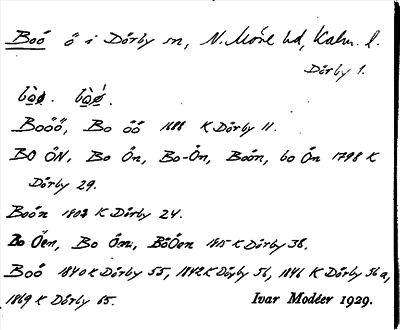 Boö ö i Dörby sn, N. Möre hd, Kalm. l.
Dörby 1.
bọ̀ø. bọ̀ǿ.
Booö, Bo öö 1688 K Dörby 11.
BO ÖN, Bo Ön, Bo-Ön, Boön, bo Ön 1798 K
Dörby 29.
Boön 1803 K Dörby 24.
Bo Öen, Bo Öm, BöÖen 1815 K Dörby 38.
Boö 1840 K Dörby 55, 1842 K Dörby 56, 1846 K Dörby 56a,
1869 K Dörby 65.
Ivar Modéer 1929.